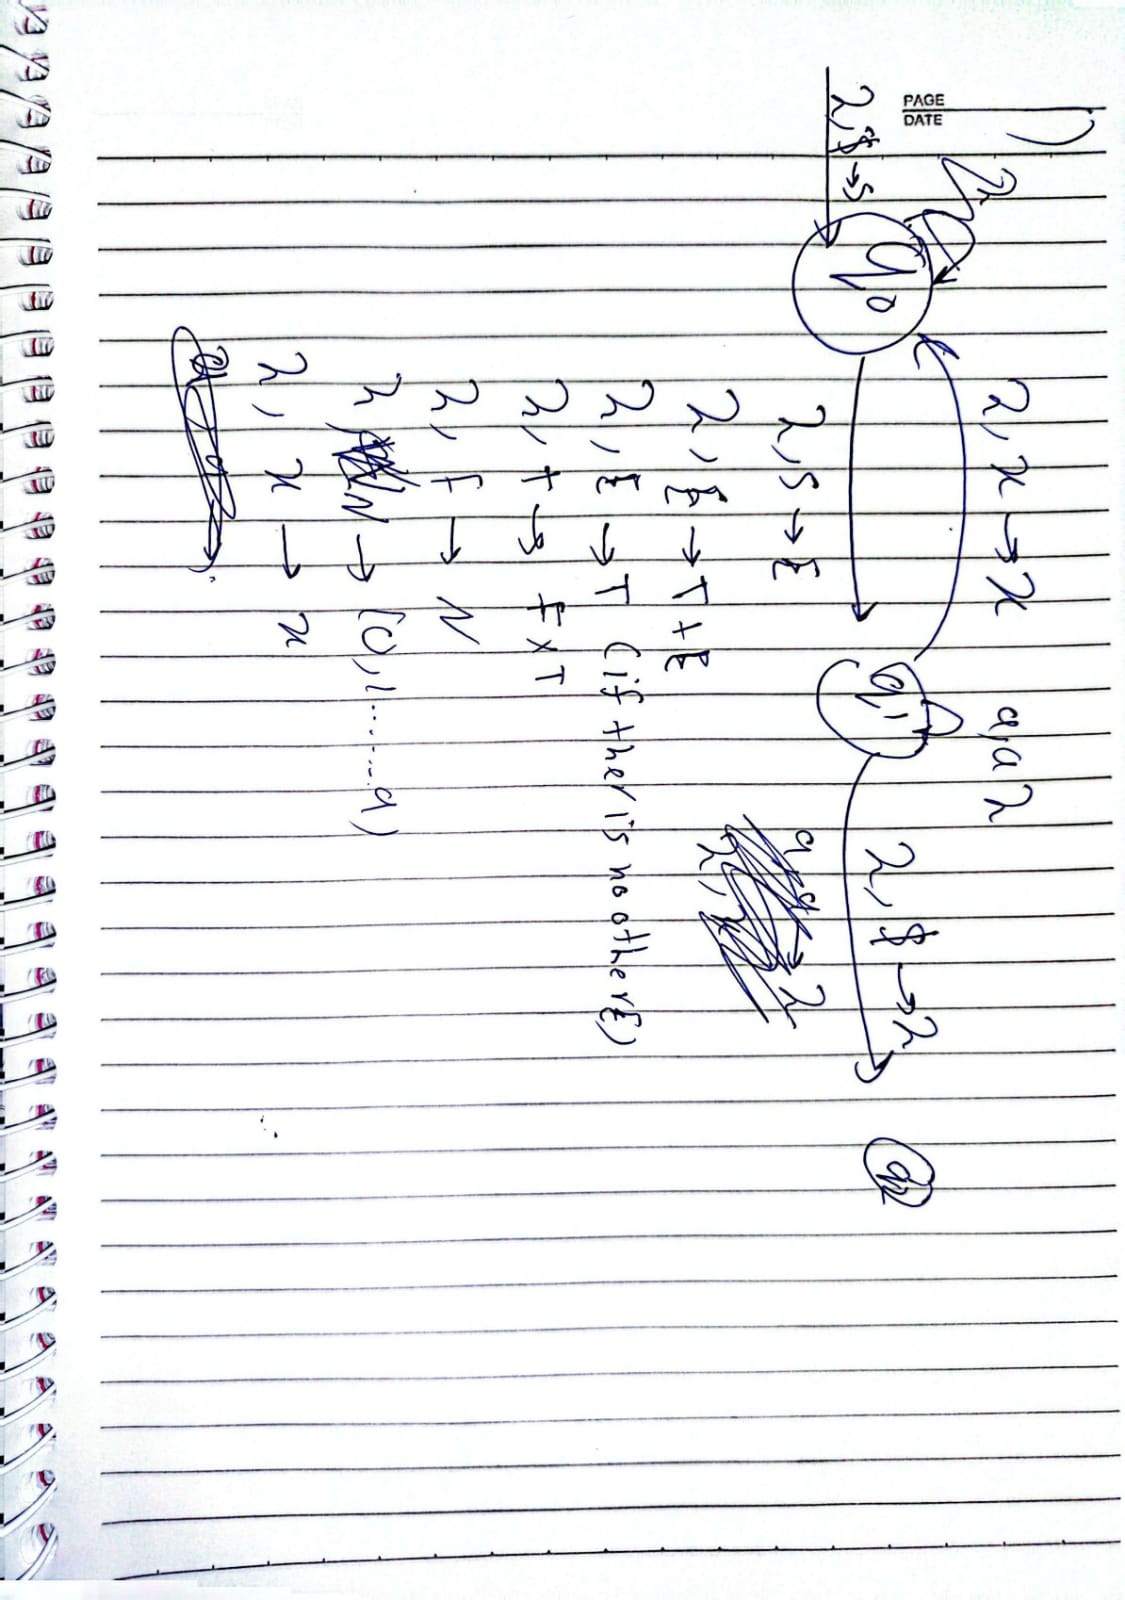 PAGE
DATE
1)
λ
λ, $ → S
q0
λ, x → x
q1
a, a λ
λ, $ → λ
q2
λ, S → E
λ, E → T + E
λ, E → T (if ther is no other E)
λ, T → F x T
λ, F → N
λ, N → (0, 1 ........ 9)
λ, x → x